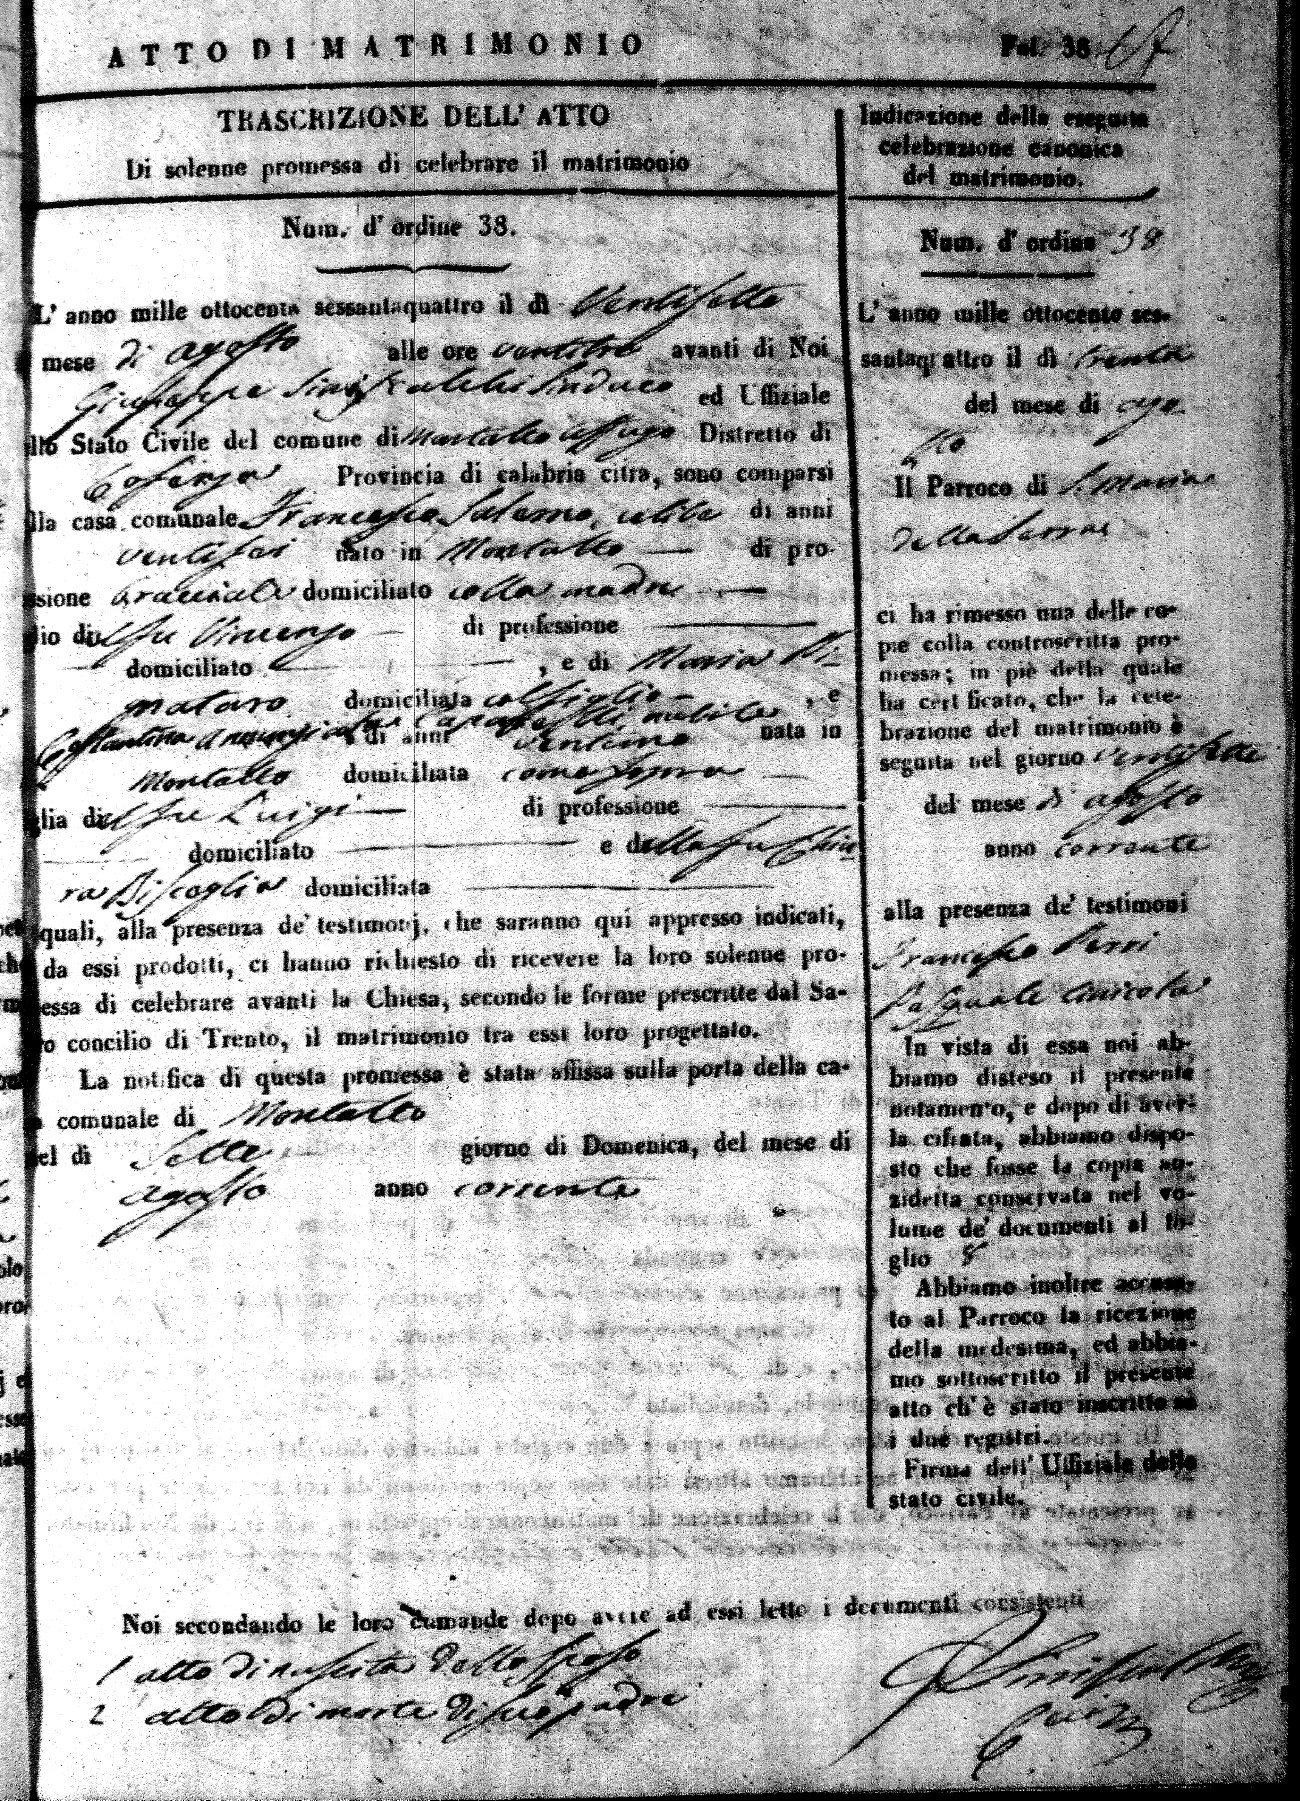 ATTO DI MATRIMONIO
Fol. 38
TRASCRIZIONE DELL' ATTO
Di solenne promessa di celebrare il matrimonio
Num. d' ordine 38.
L' anno mille ottocento sessantaquattro il dì Ventisette
mese di agosto alle ore ventitre avanti di Noi
Giuseppe Sindaco ed Uffiziale
llo Stato Civile del comune di Montalto uffugo Distretto di
Cosenza Provincia di calabria citra, sono comparsi
lla casa comunale Francesco Salerno, celibe di anni
ventisei nato in Montalto — di pro-
ssione bracciale domiciliato colla madre —
lio di del fu Vincenzo — di professione —
— domiciliato — , e di Maria Pi-
mataro domiciliata col figlio — , e
Costantina Annunziata nubile di anni ventuno nata in
Montalto domiciliata come sopra —
glia di del fu Luigi — di professione —
— domiciliato — e della fu Chia
ra Biscaglia domiciliata —
quali, alla presenza de' testimonj, che saranno qui appresso indicati,
da essi prodotti, ci hanno richiesto di ricevere la loro solenne pro-
essa di celebrare avanti la Chiesa, secondo le forme prescritte dal Sa-
ro concilio di Trento, il matrimonio tra essi loro progettato.
La notifica di questa promessa è stata affissa sulla porta della ca-
a comunale di Montalto
nel dì Sette giorno di Domenica, del mese di
agosto anno corrente
Noi secondando le loro dumande dopo avere ad essi letto i documenti consistenti
1 atto di nascita dello sposo
2 atto di morte di suo padre
Indicazione della eseguita
celebrazione canonica
del matrimonio.
Num. d' ordine 38
L' anno mille ottocento ses-
santaquattro il dì trenta
del mese di ago
sto
Il Parroco di S. Maria
della Serra
ci ha rimesso una delle co-
pie colla controscritta pro-
messa; in piè della quale
ha certificato, che la cele-
brazione del matrimonio è
seguita nel giorno ventisette
del mese di agosto
anno corrente
alla presenza de' testimoni
Francesco Perri
Pasquale
In vista di essa noi ab-
biamo disteso il presente
notamento, e dopo di aver-
la cifrata, abbiamo dispo-
sto che fosse la copia an-
zidetta conservata nel vo-
lume de' documenti al fo-
glio 8
Abbiamo inoltre accusa-
to al Parroco la ricezione
della medesima, ed abbia-
mo sottoscritto il presente
atto ch' è stato inscritto su
i due registri.
Firma dell' Uffiziale dello
stato civile.